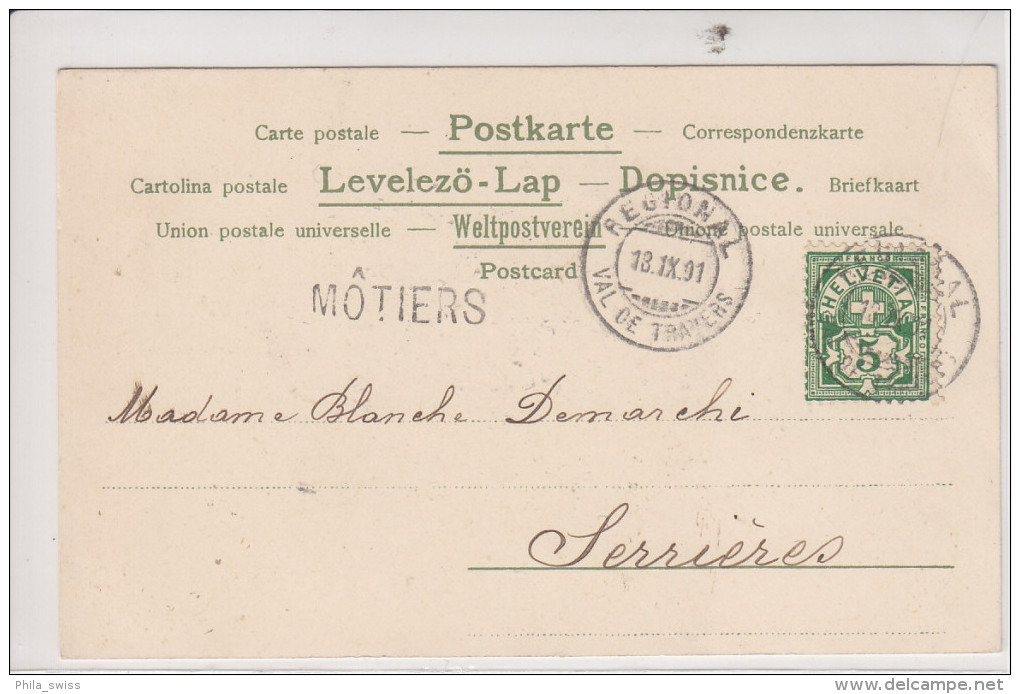 Carte postale — Postkarte — Correspondenzkarte
Cartolina postale Levelező-Lap — Dopisnice. Briefkaart
Union postale universelle — Weltpostverein — Unione postale universale
Postcard
MÔTIERS
REGIONAL
18.IX.91
VAL DE TRAVERS
FRANCO
HELVETIA
FRANCO
5
Madame Blanche Demarchi
Serrières
Phila_swiss
www.delcampe.net